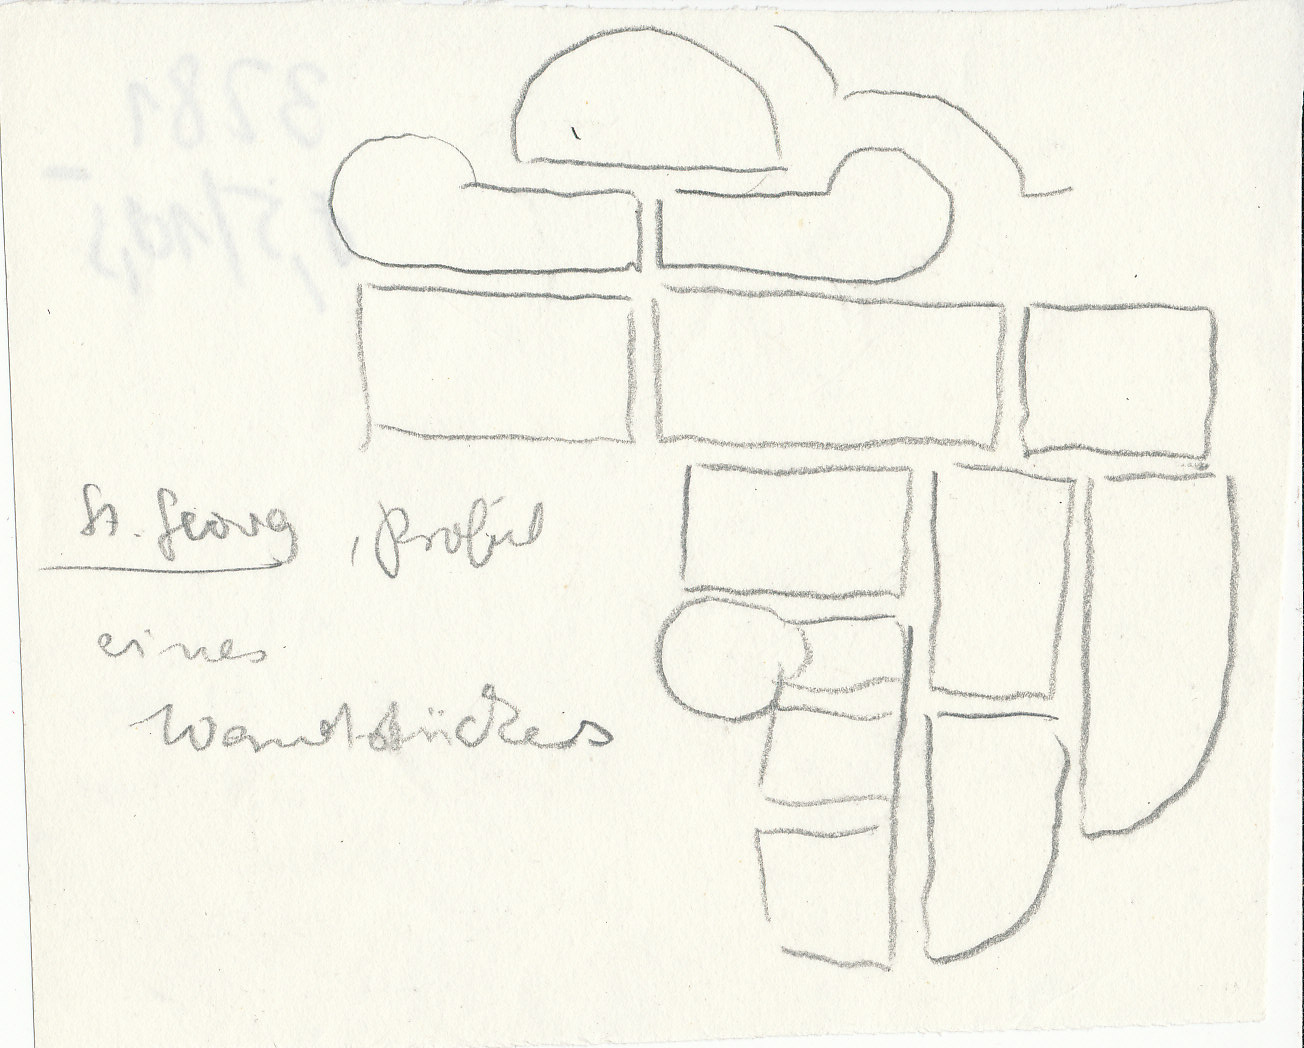 3281
St. Georg, Profil
eines
Wandstückes